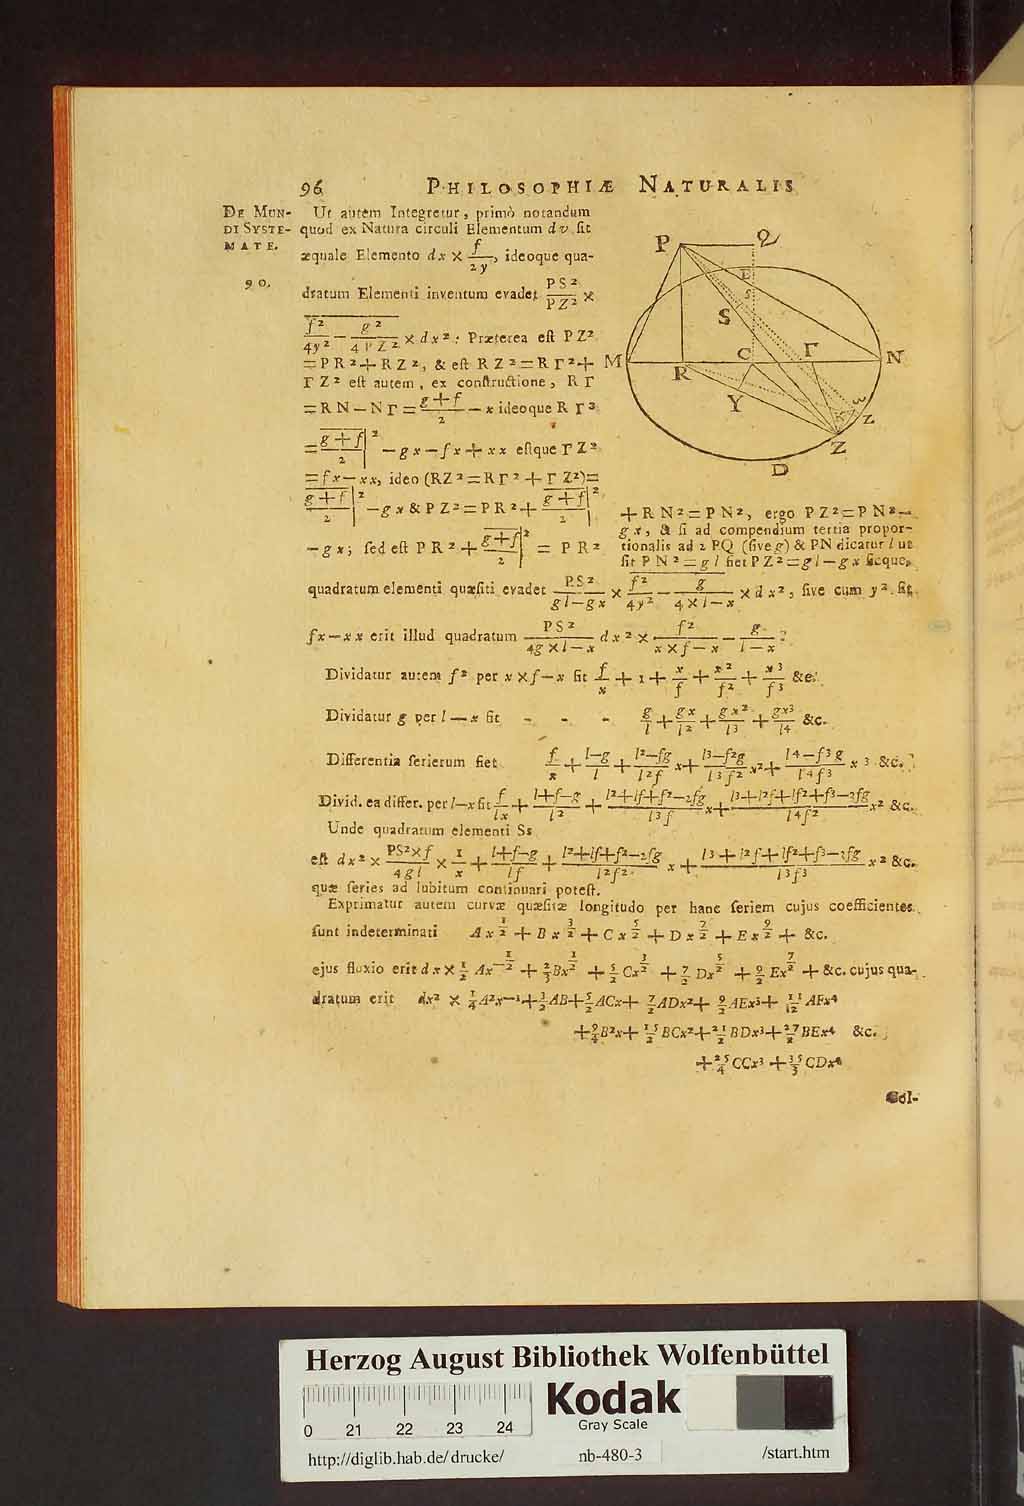 96 PHILOSOPHIÆ NATURALIS
DE MUN-
DI SYSTE-
MATE.
90.
Ut autem Integretur, primò notandum
quod ex Natura circuli Elementum dv sit
æquale Elemento dx × f/2y, ideoque qua-
dratum Elementi inventum evadet PS²/PZ² ×
f²/4y² − g²/4PZ² × dx² : Præterea est PZ²
=PR²+RZ², & est RZ²=RΓ²+
ΓZ² est autem, ex constructione, RΓ
=RN−NΓ= g+f/2 −x ideoque RΓ²
= g+f/2|² −gx−fx+xx estque ΓZ²
=fx−xx, ideo (RZ²=RΓ²+ΓZ²)=
g+f/2|² −gx & PZ²=PR²+ g+f/2|²
−gx; sed est PR²+ g+f/2|² = PR²
P Q
E
s
S
M R C Γ N
Y
z
Z
D
+RN²=PN², ergo PZ²=PN²−
gx, & si ad compendium tertia propor-
tionalis ad 2 PQ (sive g) & PN dicatur l ut
sit PN²=gl fiet PZ²=gl−gx sicque,
quadratum elementi quæsiti evadet PS²/gl−gx × f²/4y² − g/4×l−x × dx², sive cum y² sit
fx−xx erit illud quadratum PS²/4g×l−x dx² × f²/x×f−x − g/l−x
Dividatur autem f² per x×f−x fit f/x + 1 + x/f + x²/f² + x³/f³ &c.
Dividatur g per l−x fit - - - g/l + gx/l² + gx²/l³ + gx³/l4 &c.
Differentia serierum fiet f/x + l−g/l + l²−fg/l²f x+ l³−f²g/l³f² x²+ l4−f³g/l4f³ x³ &c.
Divid. ea differ. per l−x fit f/lx + l+f−g/l² + l²+lf+f²−2fg/l³f x+ l³+l²f+lf²+f³−3fg/l4f² x² &c.
Unde quadratum elementi Ss
est dx² × PS²×f/4gl × 1/x + l+f−g/lf + l²+lf+f²−2fg/l²f² x + l³+l²f+lf²+f³−3fg/l³f³ x² &c.
quæ series ad lubitum continuari potest.
Exprimatur autem curvæ quæsitæ longitudo per hanc seriem cujus coefficientes
sunt indeterminati Ax½ + Bx3/2 + Cx5/2 + Dx7/2 + Ex9/2 + &c.
ejus fluxio erit dx × ½Ax−½ + 3/2Bx½ + 5/2Cx3/2 + 7/2Dx5/2 + 9/2Ex7/2 + &c. cujus qua-
dratum erit dx² × ¼A²x−1+3/2AB+5/2ACx+ 7/2ADx²+ 9/2AEx³+ 11/12AFx4
+9/4B²x+ 15/2BCx²+21/2BDx³+27/2BEx4 &c.
+25/4CCx³ +35/3CDx4
Col-
Herzog August Bibliothek Wolfenbüttel
Kodak
Gray Scale
0 21 22 23 24
http://diglib.hab.de/drucke/ nb-480-3 /start.htm